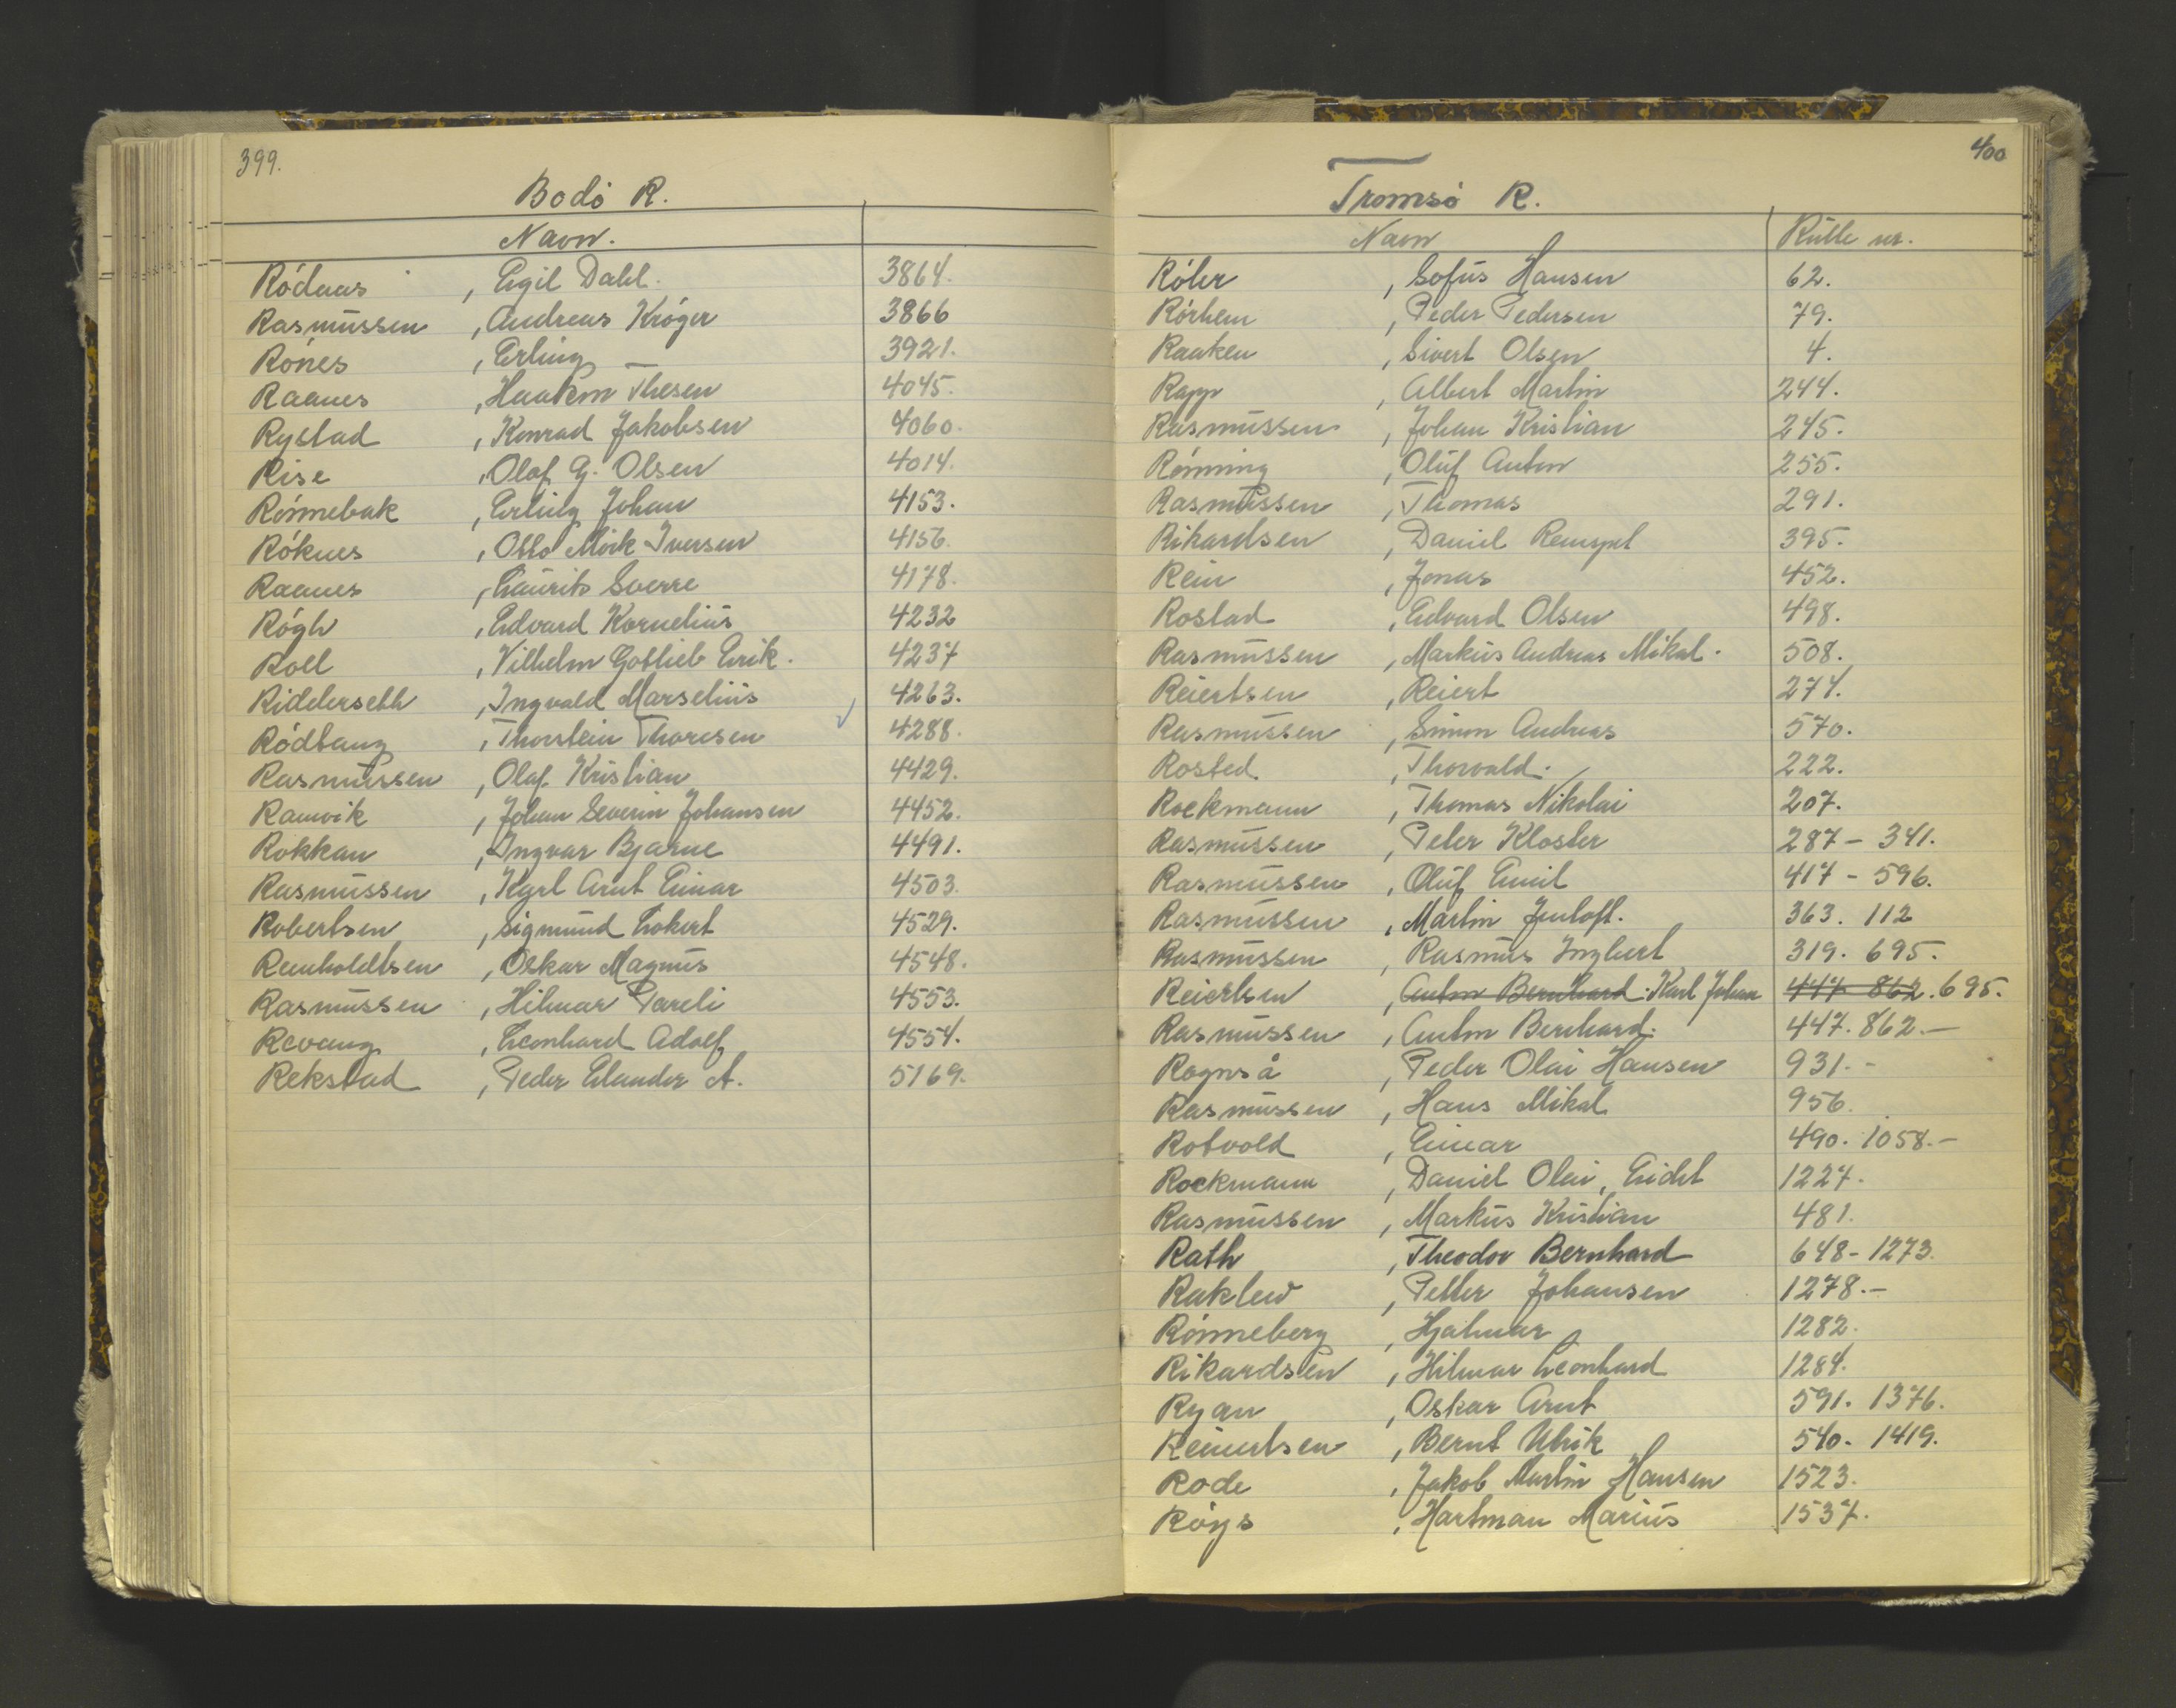 399.
Bodö R.
Navn.
Rödaas, Egil Dahl. 3864.
Rasmussen, Andreas Kröger 3866
Rönes, Erling 3921.
Raanes, Haakon Thesen 4045.
Rystad, Konrad Jakobsen 4060.
Rise, Olaf G. Olsen 4014.
Rönnebak, Erling Johan 4153.
Röknes, Otto Mörk Iversen 4156.
Raanes, Laurits Sverre 4178.
Rögh, Edvard Kornelius 4232
Roll, Vilhelm Gotlieb Erik. 4237
Ridderseth, Ingvald Marselius 4263.
Rödtang, Thorstein Thoresen 4288.
Rasmussen, Olaf Kristian 4429.
Ramvik, Johan Severin Johansen 4452.
Rokkan, Ingvar Bjarne 4491.
Rasmussen, Karl Arnt Einar 4503.
Robertsen, Sigmund Lokert 4529.
Reinholdtsen, Oskar Magnus 4548.
Rasmussen, Hilmar Pareli 4553.
Revang, Leonhard Adolf 4554.
Rekstad, Peder Elander A. 5169.
400
Tromsö R.
Navn Rulle nr.
Röler, Sofus Hansen 62.
Rörhem, Peder Pedersen 79.
Raaken, Sivert Olsen 4.
Rapp, Albert Martin 244.
Rasmussen, Johan Kristian 245.
Rönning, Oluf Anton 255.
Rasmussen, Thomas 291.
Rikardsen, Daniel 395.
Rein, Jonas 452.
Rostad, Edvard Olsen 498.
Rasmussen, Markus Andreas Mikal. 508.
Reiertsen, Reiert 274.
Rasmussen, Simon Andreas 570.
Rosted., Thorvald. 222.
Rockmann, Thomas Nikolai 207.
Rasmussen, Peter Kloster 287 - 341.
Rasmussen, Oluf Emil 417 - 596.
Rasmussen, Martin Jentoft. 363. 112
Rasmussen, Rasmus Ingbert 319. 695.
Reiertsen, Anton Bernhard. Karl Johan 447 862. 695.
Rasmussen, Anton Bernhard. 447. 862. -
Rognså, Peder Olai Hansen 931. -
Rasmussen, Hans Mikal 956.
Rotvold, Einar 490. 1058. -
Rockmann, Daniel Olai, Eidet 1227.
Rasmussen, Markus Kristian 481.
Rath, Theodor Bernhard 648 - 1273.
Raklew, Petter Johansen 1278. -
Rönneberg, Hjalmar 1282.
Rikardsen, Hilmar Leonhard 1284.
Ryan, Oskar Arnt 591. 1376.
Reinertsen, Bernt Ulrik 540. 1419.
Rode, Jakob Martin Hansen 1523.
Röys, Hartman Marius 1537.